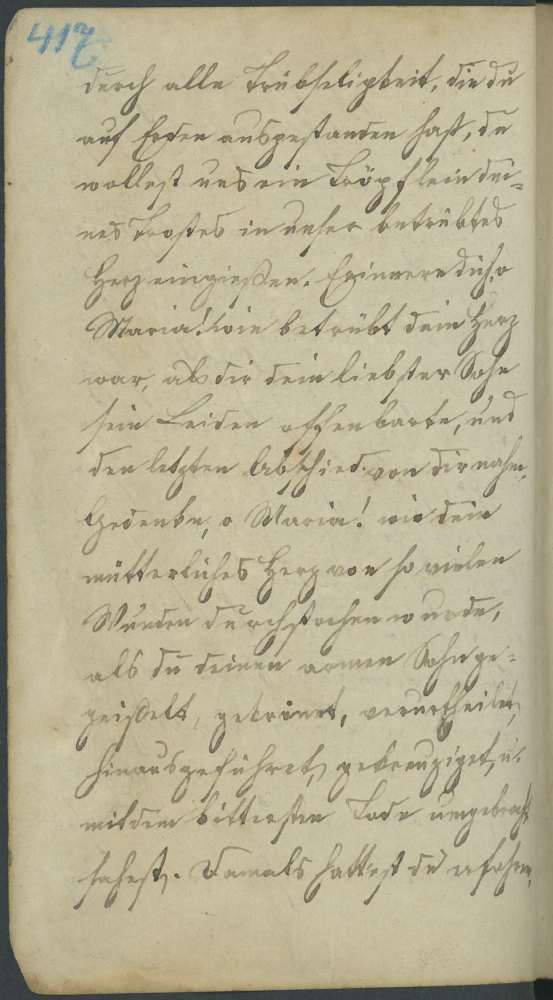 417
durch alle Trübseligkeit, die du
auf Erden ausgestanden hast, du
wollest uns ein Tröpflein dei=
nes Trostes in unser betrübtes
Herz eingießen. Erinnere dich, o
Maria! wie betrübt dein Herz
war, als dir dein liebster Sohn
sein Leiden offenbarte, und
den letzten Abschied von dir nahm,
Gedenke, o Maria! wie dein
mütterliches Herz von so vielen
Wunden durchstochen wurde,
als du deinen armen Sohn ge=
geißelt, gekrönet, verurtheilet,
hinausgeführet, gekreuziget, u.
mit dem bittersten Tode umgebracht
sahest. Damals hattest du erfahren,